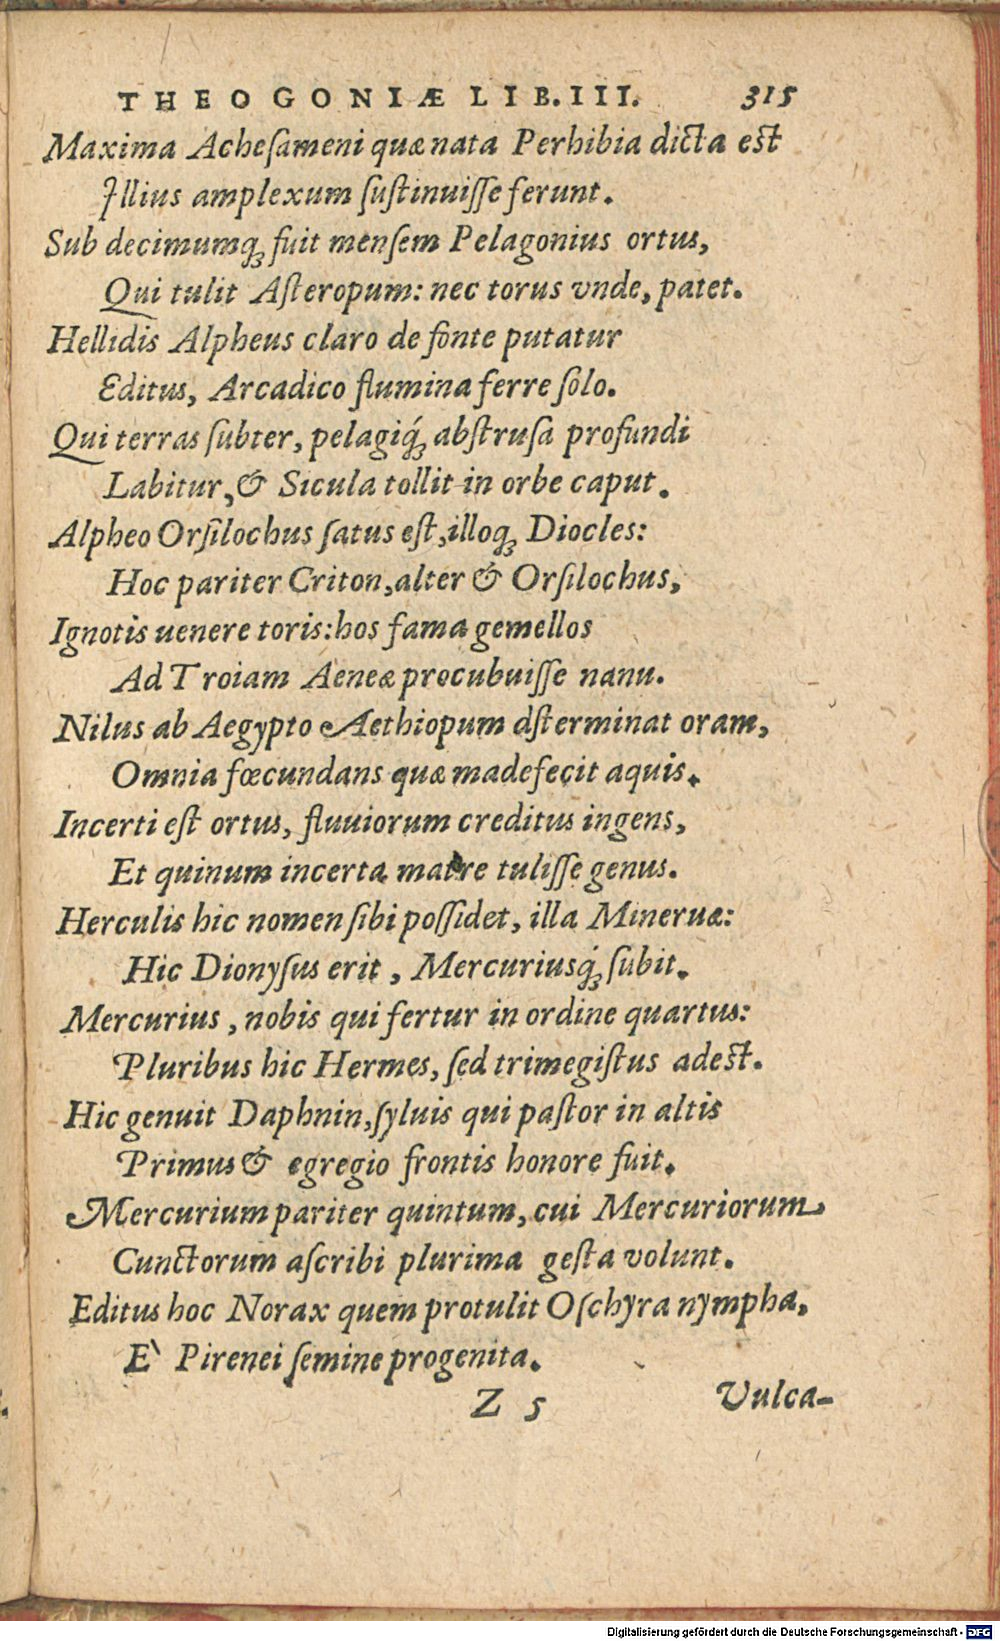 THEOGONIÆ LIB. III. 315
Maxima Achesameni quæ nata Perhibia dicta est
Illius amplexum sustinuisse ferunt.
Sub decimumq; fuit mensem Pelagonius ortus,
Qui tulit Asteropum: nec torus vnde, patet.
Hellidis Alpheus claro de fonte putatur
Editus, Arcadico flumina ferre solo.
Qui terras subter, pelagiq́; abstrusa profundi
Labitur, & Sicula tollit in orbe caput.
Alpheo Orsilochus satus est, illoq; Diocles:
Hoc pariter Criton, alter & Orsilochus,
Ignotis uenere toris: hos fama gemellos
Ad Troiam Aeneæ procubuisse manu.
Nilus ab Aegypto Aethiopum dsterminat oram,
Omnia fœcundans quæ madefecit aquis.
Incerti est ortus, fluuiorum creditus ingens,
Et quinum incerta matre tulisse genus.
Herculis hic nomen sibi possidet, illa Mineruæ:
Hic Dionysus erit, Mercuriusq́; subit.
Mercurius, nobis qui fertur in ordine quartus:
Pluribus hic Hermes, sed trimegistus adest.
Hic genuit Daphnin, syluis qui pastor in altis
Primus & egregio frontis honore fuit.
Mercurium pariter quintum, cui Mercuriorum
Cunctorum ascribi plurima gesta volunt.
Editus hoc Norax quem protulit Oschyra nympha,
E` Pirenei semine progenita.
Z 5 Vulca-
Digitalisierung gefördert durch die Deutsche Forschungsgemeinschaft - DFG